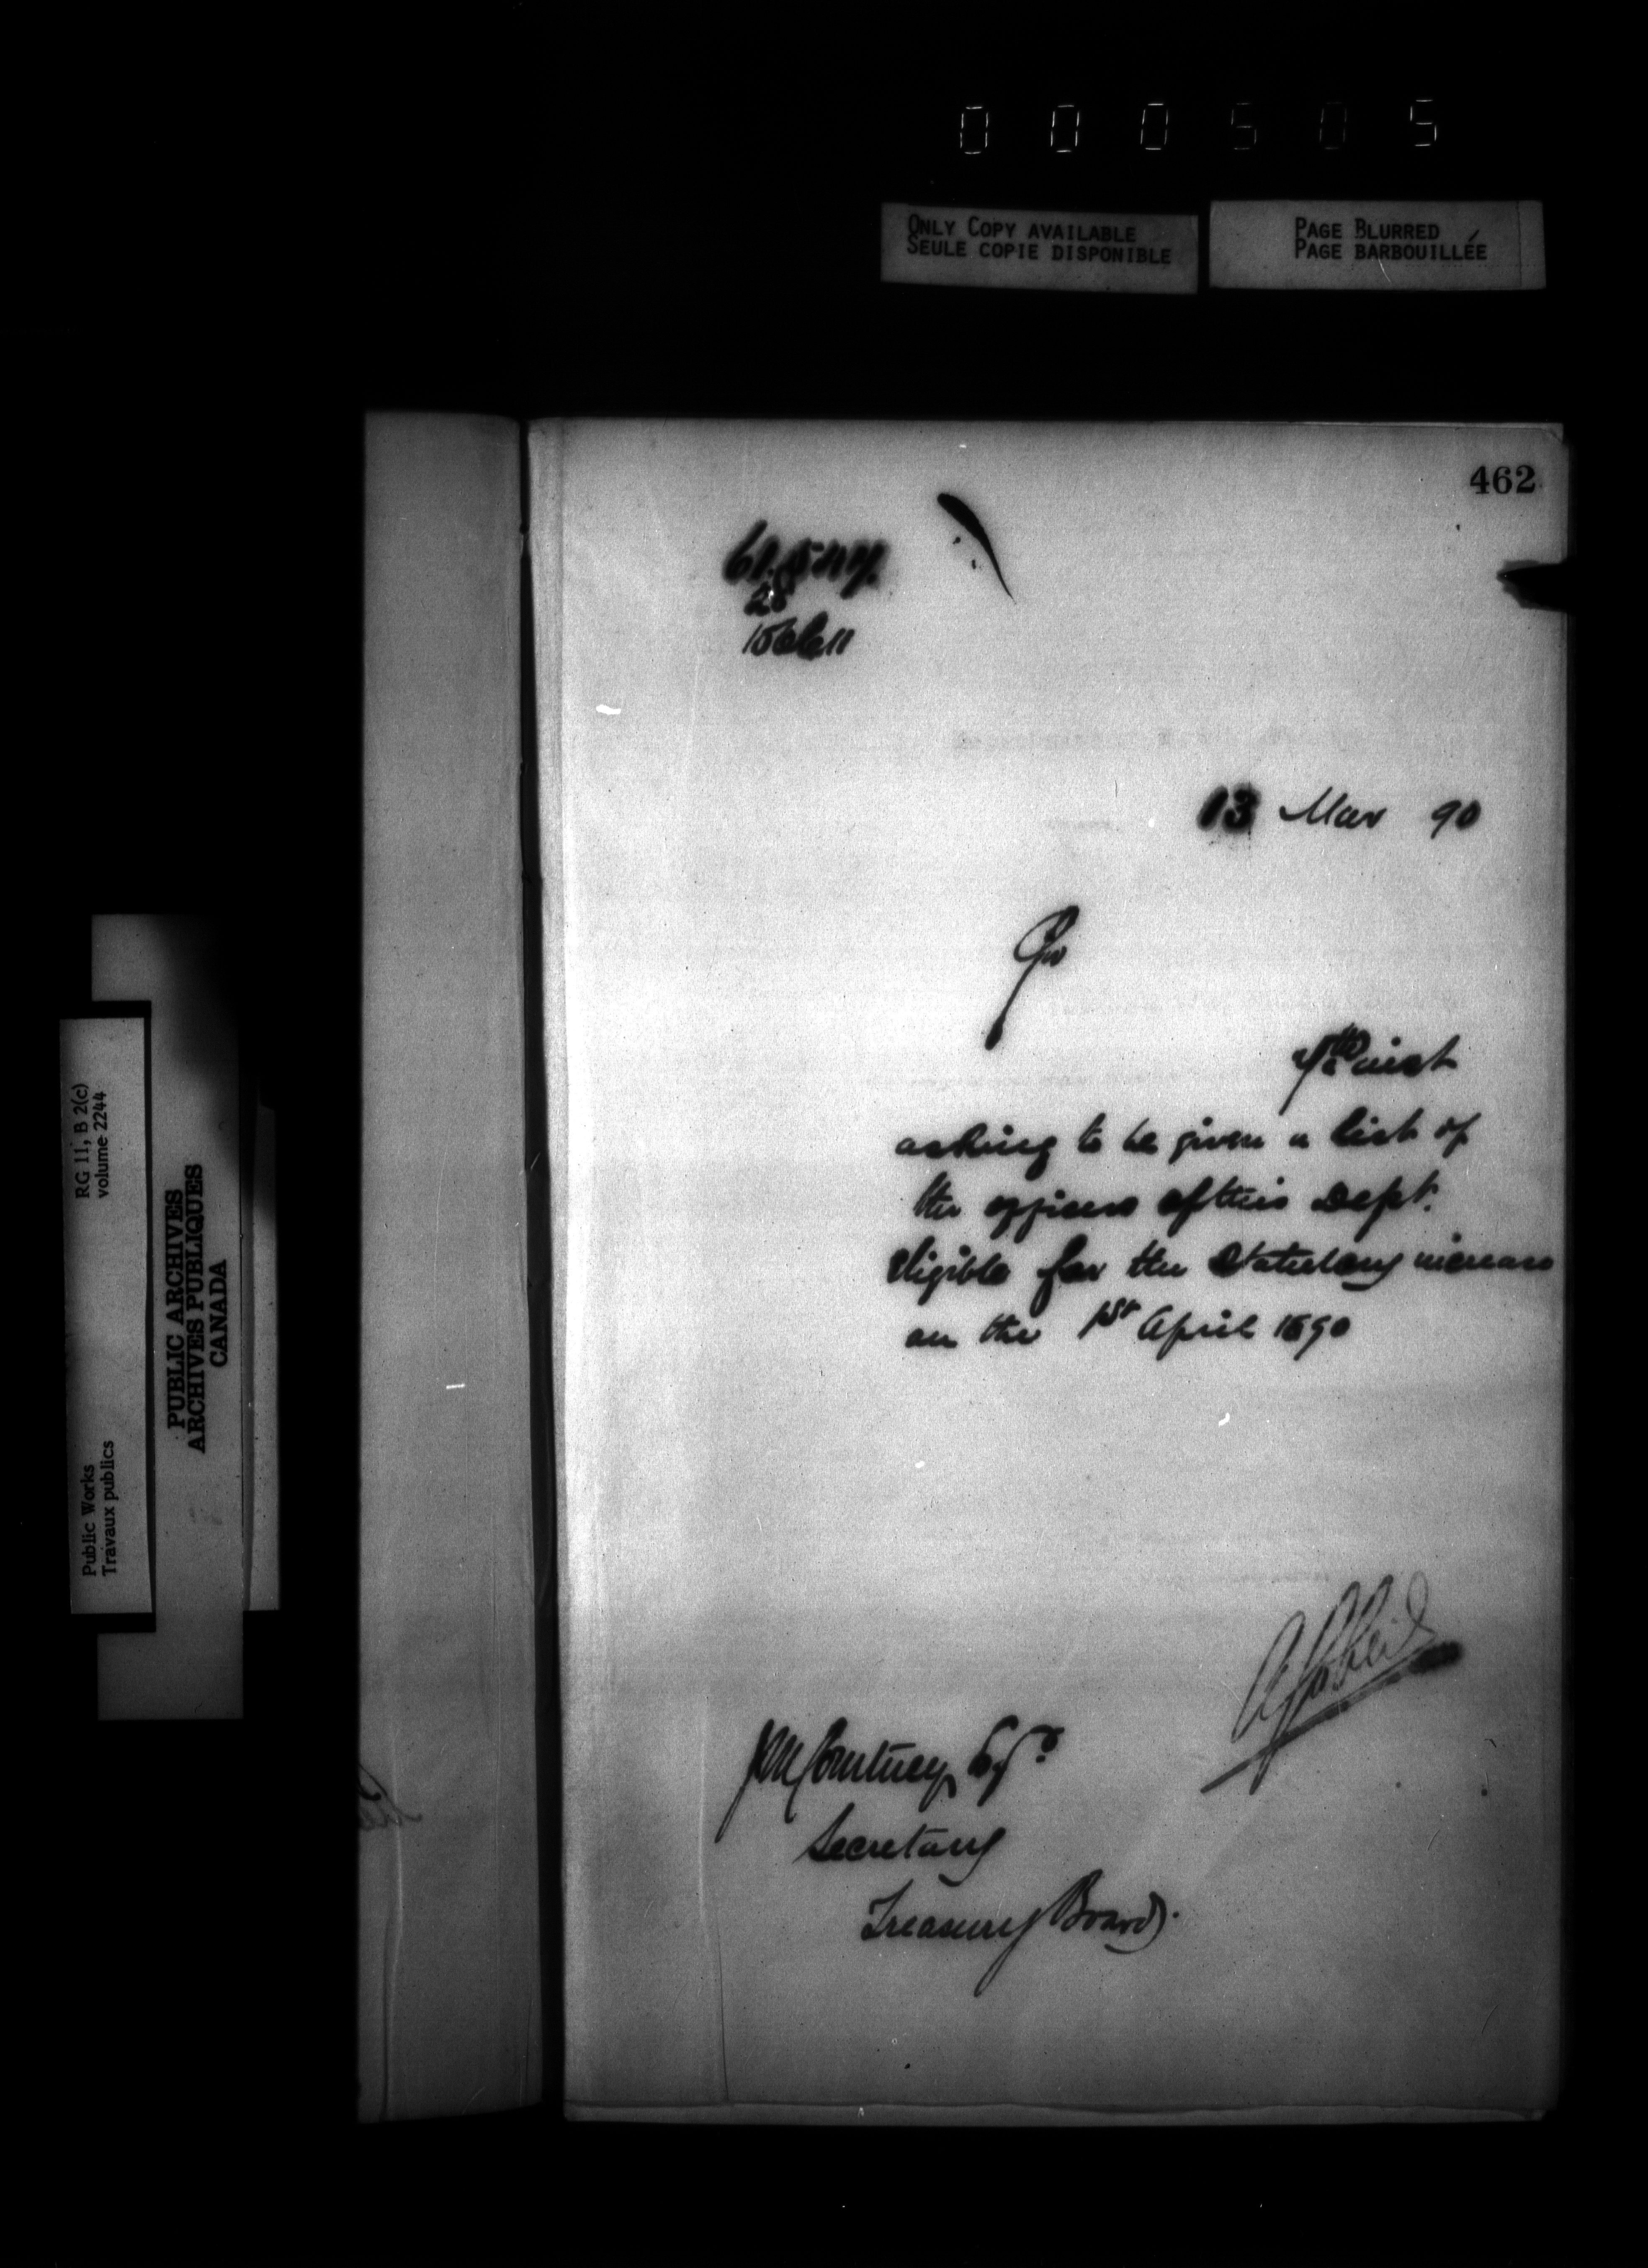 000505
ONLY COPY AVAILABLE
SEULE COPIE DISPONIBLE
PAGE BLURRED
PAGE BARBOUILLÉE
462
28
13 Mar 90
Sir
inst
asking to be given a list of
the officers of this Dept.
eligible for the Statutory increase
on the 1st April 1890
J M Courtney Esqr
Secretary
Treasury Board.
RG 11, B 2(c)
volume 2244
Public Works
Travaux publics
PUBLIC ARCHIVES
ARCHIVES PUBLIQUES
CANADA